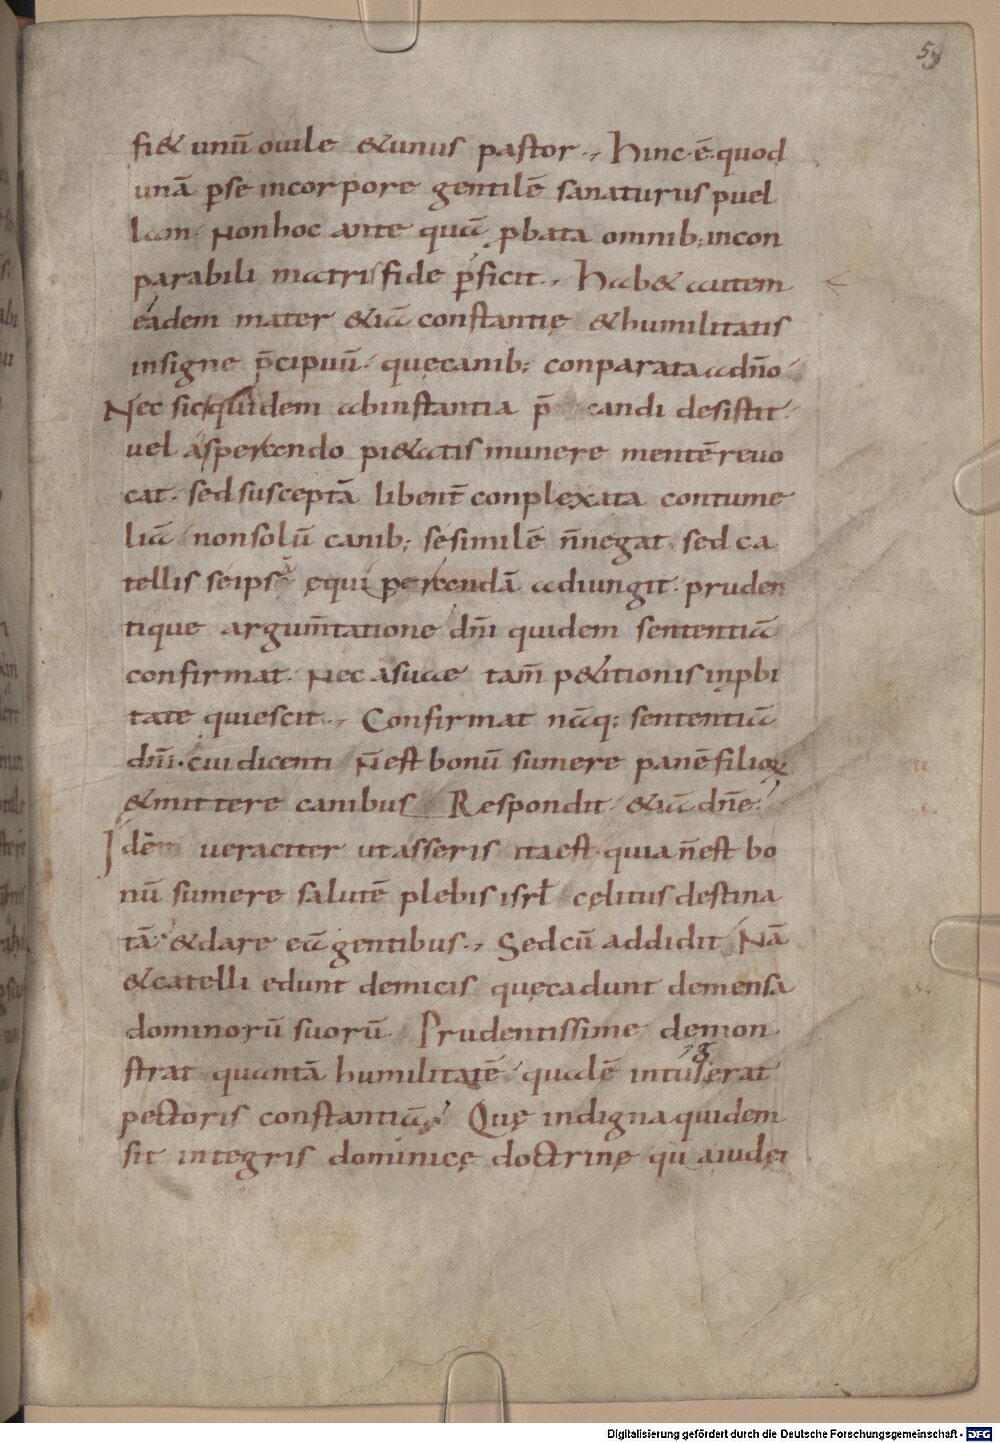 59
fi& unū ouile &unus pastor., hinc·ē·quod
unā p̱se incorpore gentilē sanaturus puel
lam· Nonhoc ante quā p̱bata omnib; incon
parabili matris fide p̱ficit., hab& autem
eadem mater &iā constantię &humilitatis
insigne p̄cipuū· quęcanib; conparata adn̄o
Nec sic quidem abinstantia p̄ candi desistit·
uel asperando pi&atis munere mentē reuo
cat· sed susceptā libent̄ conplexata contume
liā nonsolū canib; sesimilē n̄negat sed ca
tellis seipsā ęqui perandā adiungit· pruden
tique argum̄tatione dn̄i quidem sententiā
confirmat· Nec asuae tam̄ p&itionis inp̱bi
tate quiescit., Confirmat naq; sententiā
dn̄i· cui dicenti N̄est bonū sumere panē filioꝝ
&mittere canibus Respondit· &iā dn̄e·
Idē ueraciter utasseris itaest· quia n̄est bo
nū sumere salutē plebis isrł cęlitus destina
tā· &dare eā gentibus., Sedcū addidit Nā
&catelli edunt demicis quęcadunt demensa
dominorū suorū· Prudentissime demon
strat quantā humilitatē quālē intus gerat
pectoris constantiā· Quę indigna quidem
sit integris dominicę doctrinę qu aiudei
Digitalisierung gefördert durch die Deutsche Forschungsgemeinschaft - DFG